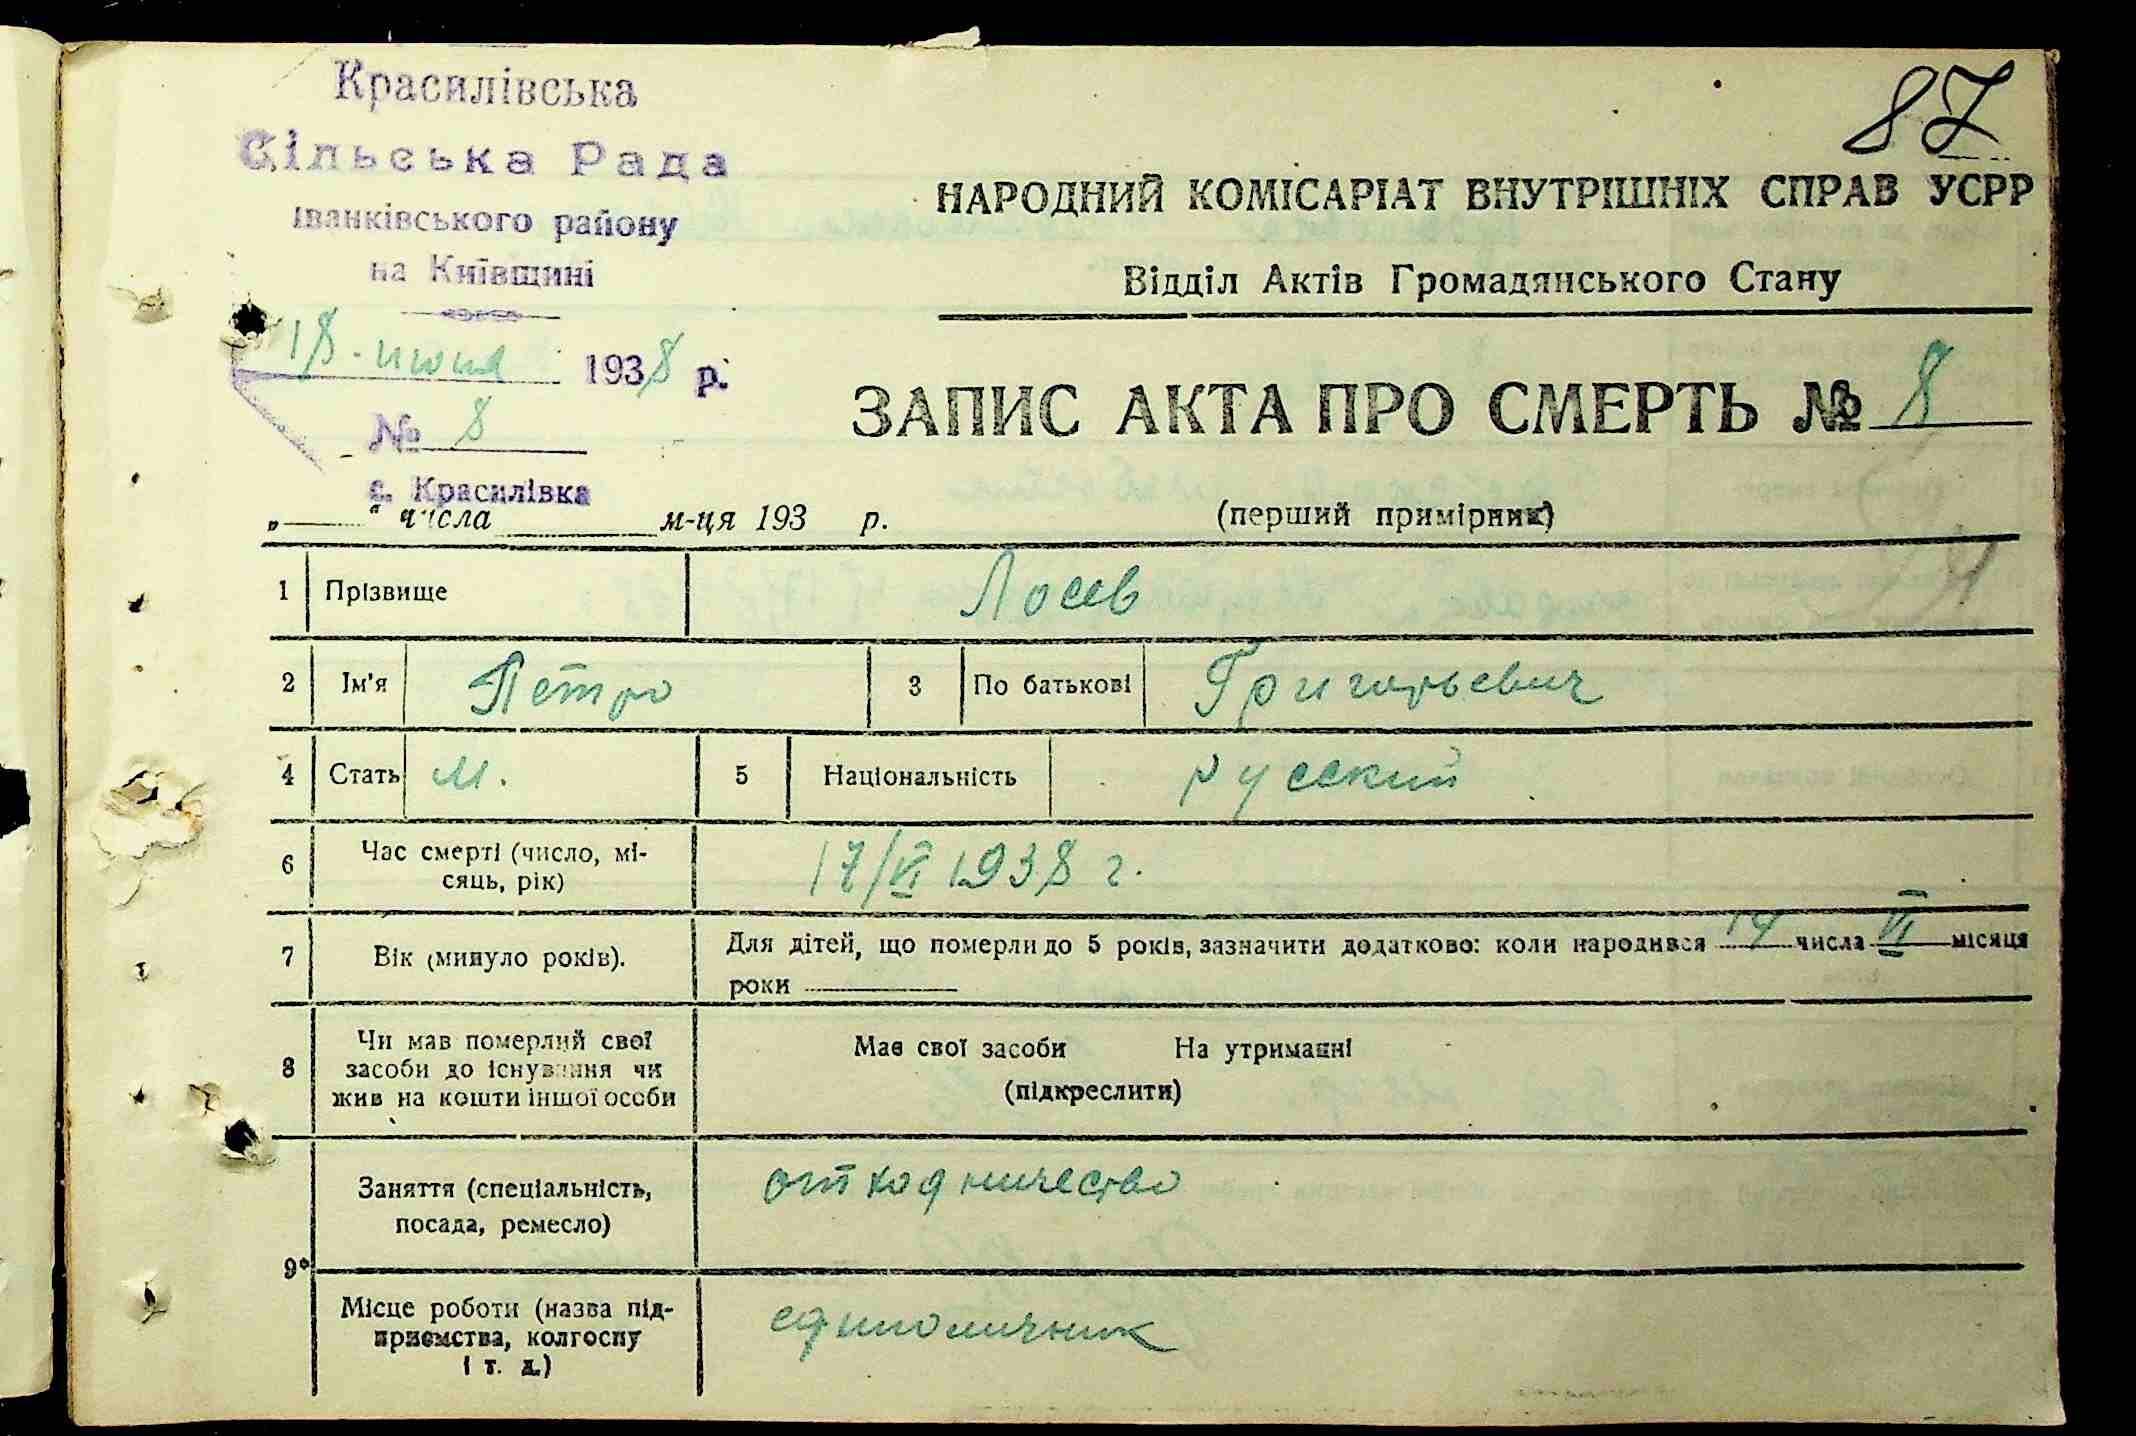 Красилівська
Сільська Рада
Іванківського району
на Київщині
18. июня 1938 р.
№ 8
с. Красилівка
87
НАРОДНИЙ КОМІСАРІАТ ВНУТРІШНІХ СПРАВ УСРР
Відділ Актів Громадянського Стану
ЗАПИС АКТА ПРО СМЕРТЬ № 8
„ “ числа м-ця 193 р.
(перший примірник)
1 Прізвище Лосев
2 Ім'я Петро 3 По батькові Григорьевич
4 Стать м. 5 Національність русский
6 Час смерті (число, мі-
сяць, рік) 17/VI 1938 г.
7 Вік (минуло років). Для дітей, що померли до 5 років, зазначити додатково: коли народився 14 числа VI місяця
роки
8 Чи мав померлий свої
засоби до існування чи
жив на кошти іншої особи
Має свої засоби На утриманні
(підкреслити)
9
Заняття (спеціальність,
посада, ремесло) отходничество
Місце роботи (назва під-
приємства, колгоспу
і т. д.) единоличник